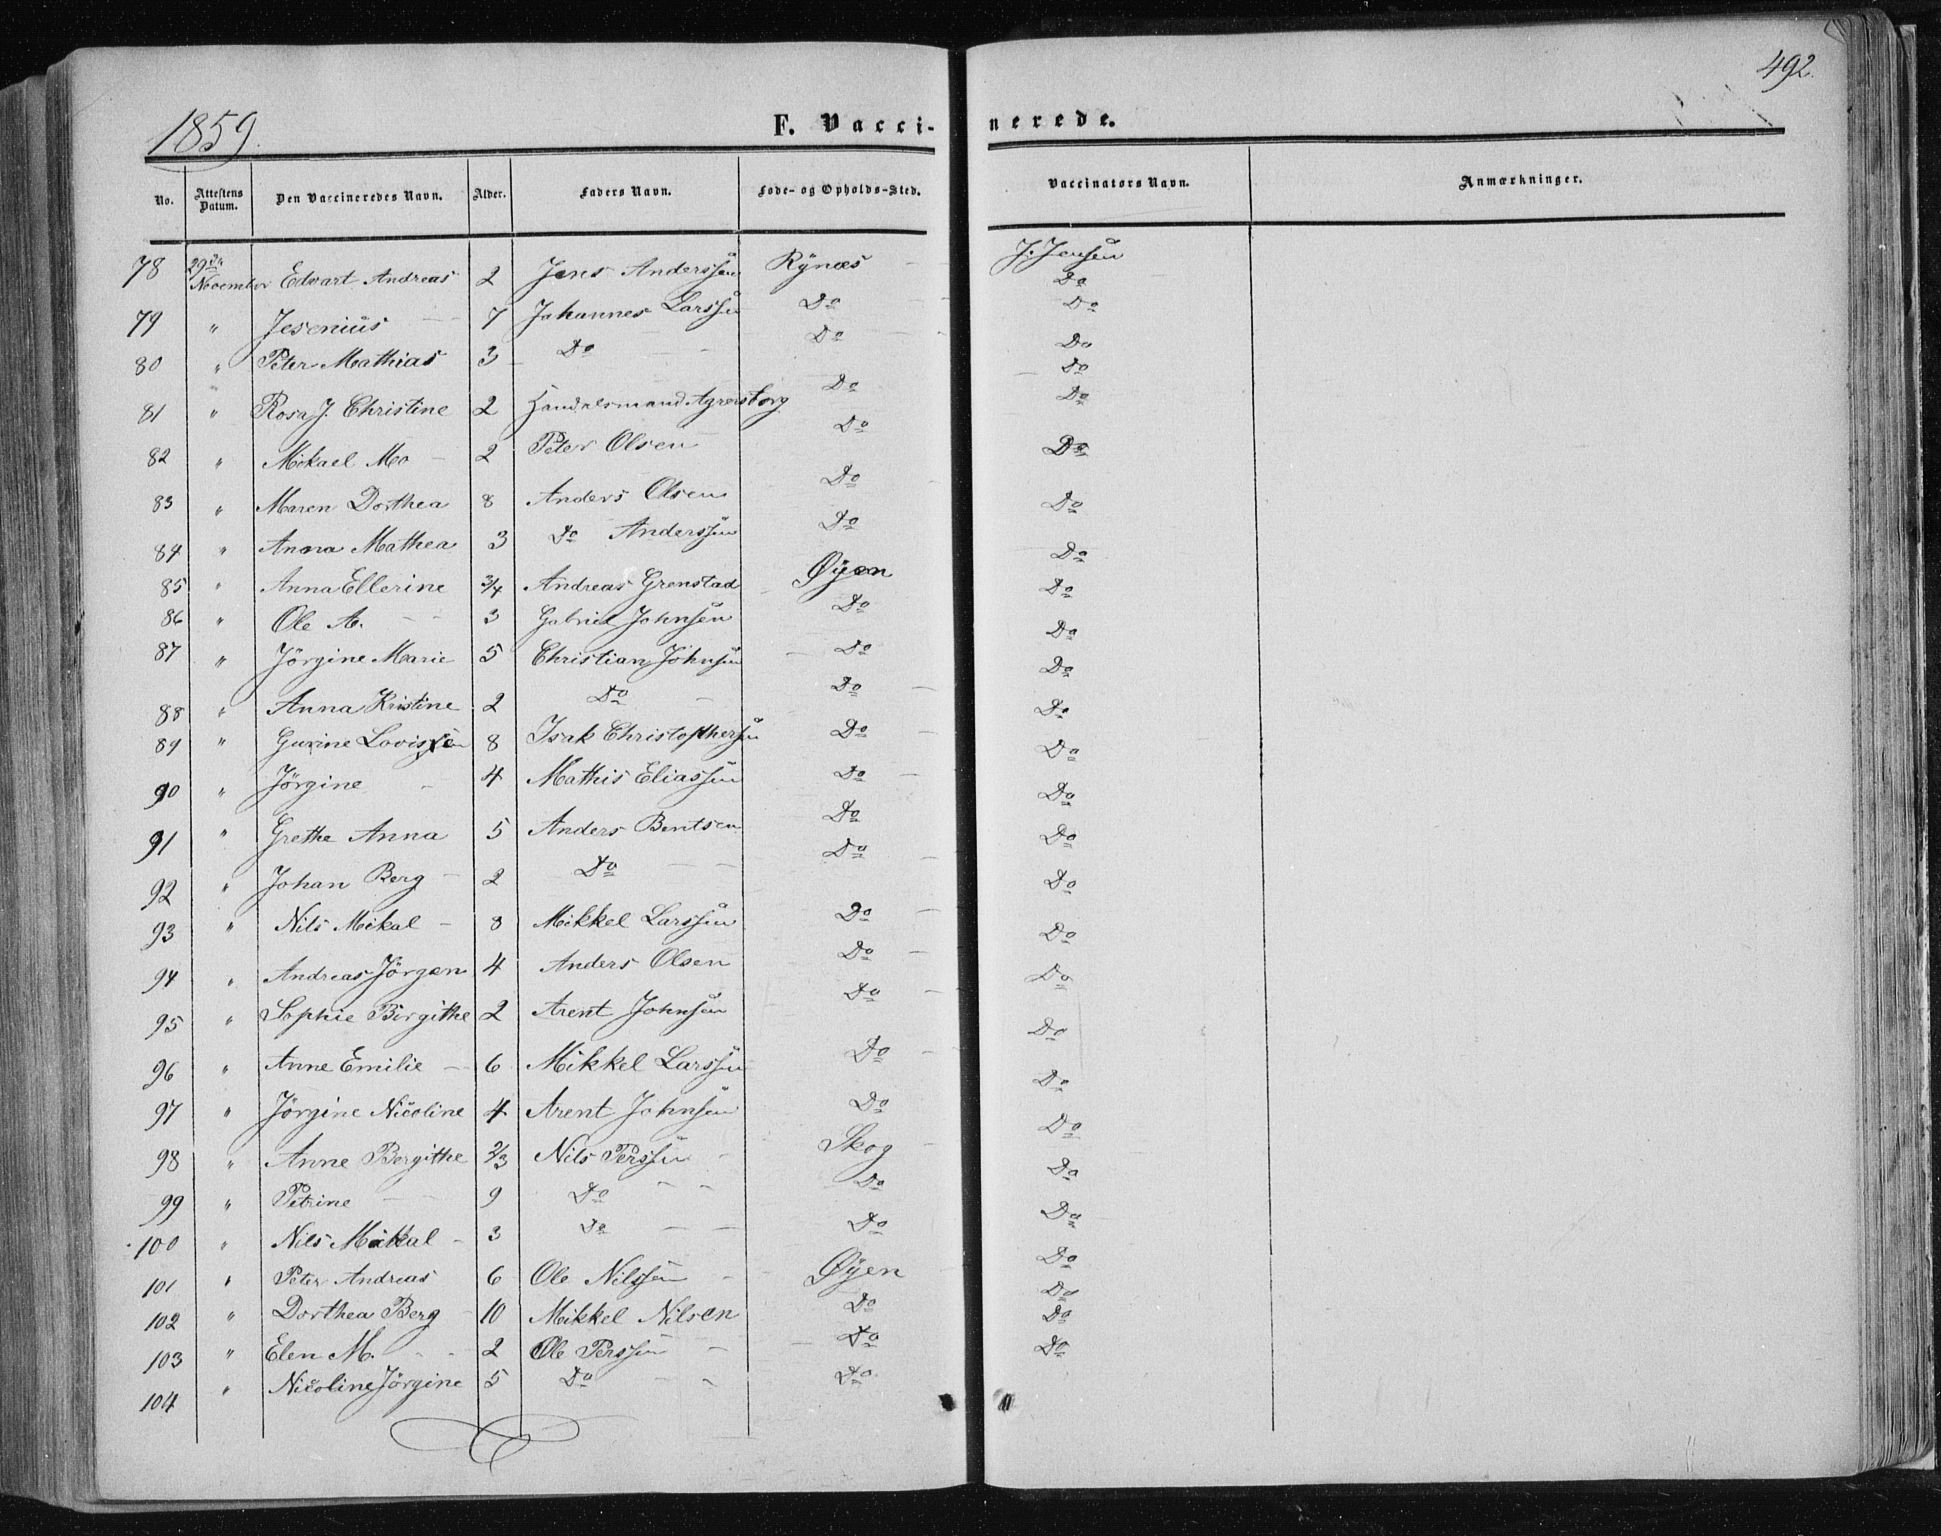 492.
1859.
F. Vaccinerede.
No. Attestens Datum. Den Vaccineredes Navn. Alder. Faders Navn. Føde- og Opholds-Sted. Vaccinators Navn. Anmærkninger.
78 29de November Edvart Andreas 2 Jens Anderssen Rynæs J. Jensen
Do
79 " Jesenius 7 Johannes Larssen Do Do
80 " Peter Mathias 3 Do Do Do
Do
81 " Rosa J. Christine 2 Handelsmand Agersborg Do Do
82 " Mikael Mo 2 Peter Olsen Do Do
83 " Maren Dorthea 8 Anders Olsen Do Do
84 " Anna Mathea 3 Do Anderssen Do Do
85 " Anna Ellerine 3/4 Andreas Grenstad Øyen Do
86 " Ole A. 3 Gabriel Johnsen Do Do
87 " Jörgine Marie 5 Christian Johnsen Do Do
88 " Anna Kristine 2 Do Do Do
89 " Gurine 8 Isak Christophersen Do Do
90 " Jörgine 4 Mathis Eliassen Do Do
91 " Grethe Anna 5 Anders Bentsen Do Do
92 " Johan Berg 2 Do Do Do
93 " Nils Mikal 8 Mikkel Larssen Do Do
94 " Andreas Jörgen 4 Anders Olsen Do Do
95 " Sophie Birgithe 2 Arent Johnsen Do Do
96 " Anne Emilie 6 Mikkel Larssen Do Do
97 " Jörgine Nicoline 4 Arent Johnsen Do Do
98 " Anne Bergithe 2/3 Nils Perssen Skog Do
99 " Petrine 9 Do Do Do
100 " Nils Mikkal 3 Do Do Do
101 " Peter Andreas 6 Ole Nilssen Øyen Do
102 " Dorthea Berg 10 Mikkel Nilsen Do Do
103 " Elen M. 2 Ole Perssen Do Do
104 " Nicoline Jörgine 5 Do Do